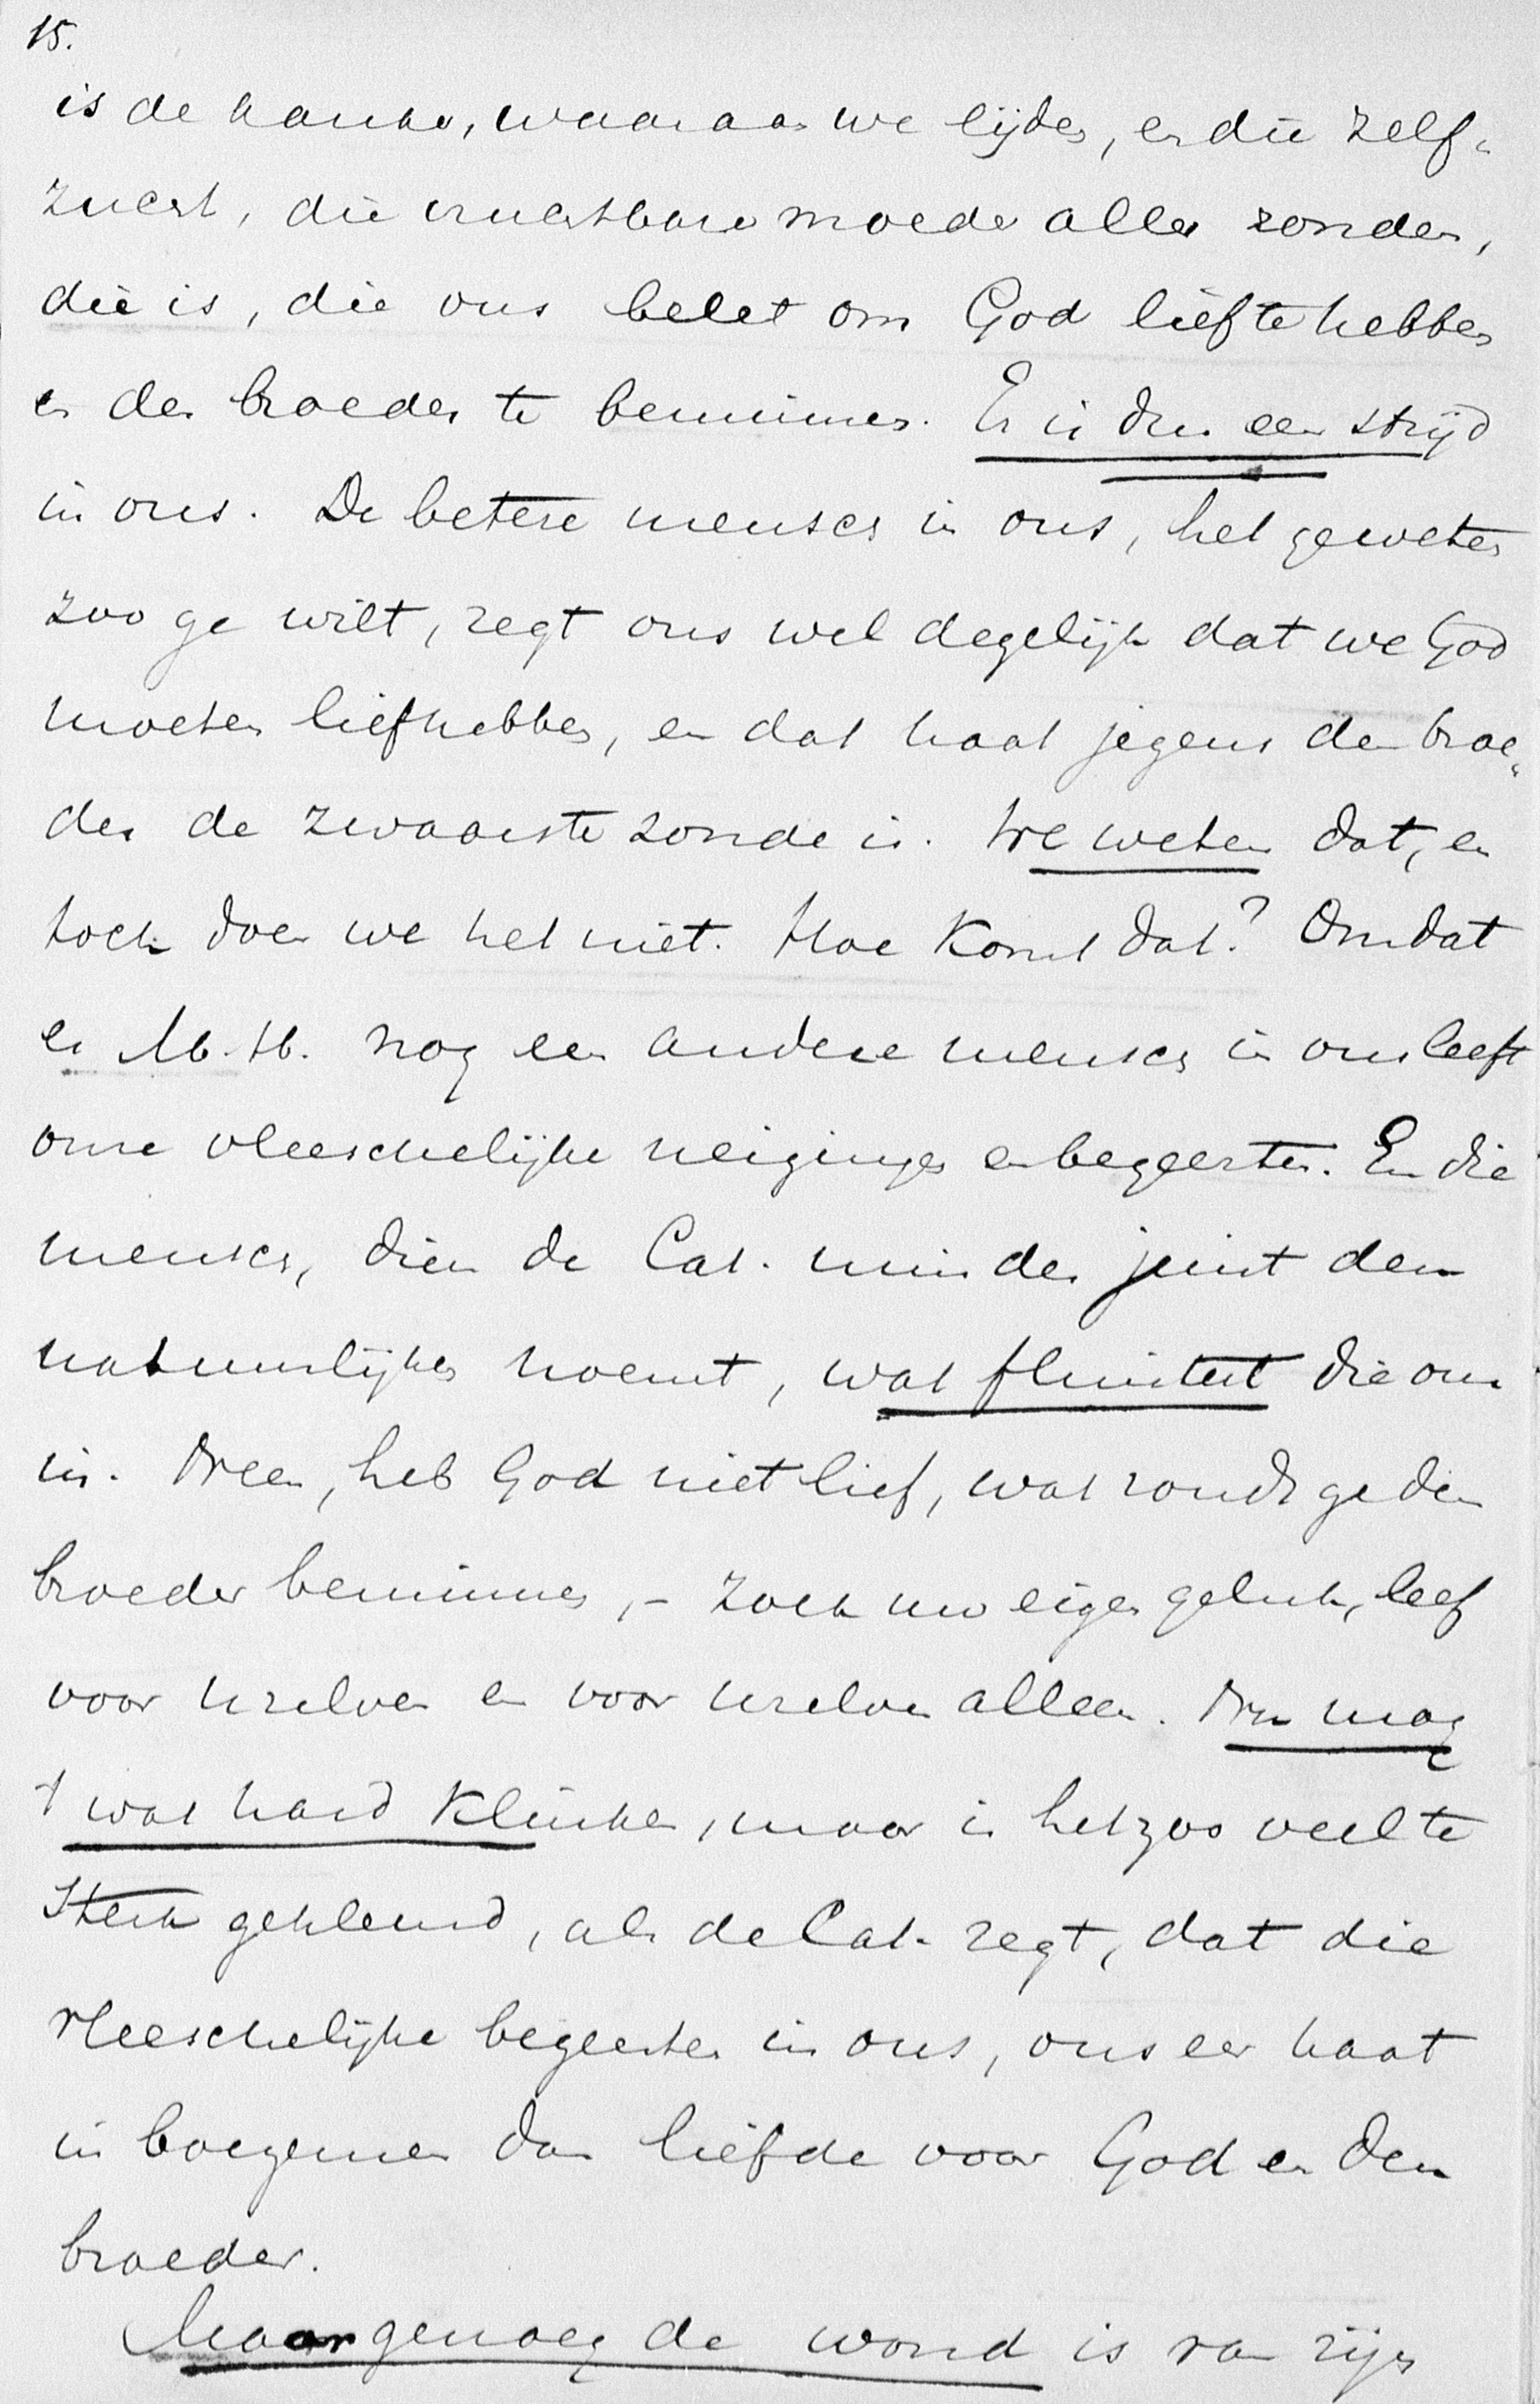 15.
is de kanker, waaraan we lijden, en die zelf-
zucht, die vruchtbare moeder aller zonden,
die is, die ons belet om God lief te hebben
en den broeder te beminnen. Er is dus een strijd
in ons. De betere mensch in ons, het geweten
zoo ge wilt, zegt ons wel degelijk dat we God
moeten liefhebben, en dat haat jegens den broe-
der de zwaarste zonde is. We weten dat, en
toch doen we het niet. Hoe komt dat? Omdat
er M. H. nog een andere mensch in ons leeft
onze vleeschelijke neigingen en begeerten. En die
mensch, dien de Cat. minder juist den
natuurlijken noemt, wat fluistert die ons
in. Neen, heb God niet lief, wat zoudt ge den
broeder beminnen, – zoek uw eigen geluk, leef
voor uzelven en voor uzelven alleen. Nu mag
't wat hard klinken, maar is het zoo veel te
sterk gekleurd, als de Cat. zegt, dat die
vleeschelijke begeerten in ons, ons eer haat
in boezemen dan liefde voor God en den
broeder.
Maar genoeg de wond is van zijn